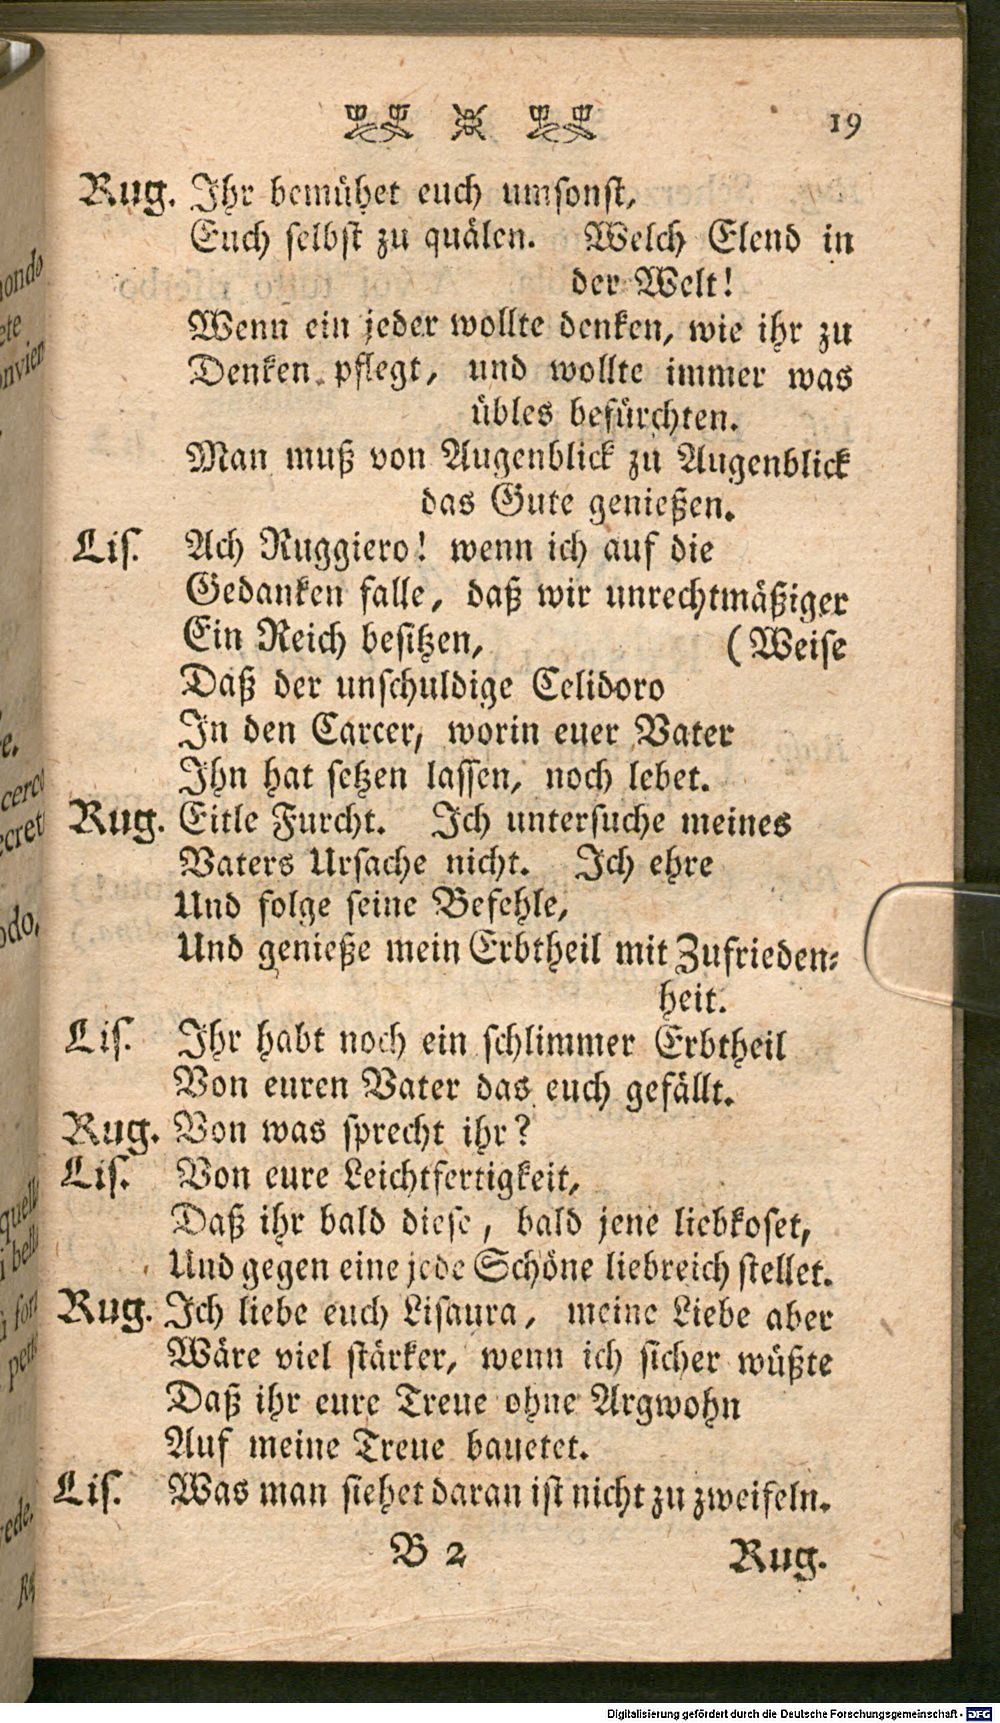 19
Rug. Ihr bemühet euch umsonst,
Euch selbst zu quälen. Welch Elend in
der Welt!
Wenn ein jeder wollte denken, wie ihr zu
Denken pflegt, und wollte immer was
übles befürchten.
Man muß von Augenblick zu Augenblick
das Gute genießen.
Lis. Ach Ruggiero! wenn ich auf die
Gedanken falle, daß wir unrechtmäßiger
Ein Reich besitzen, (Weise
Daß der unschuldige Celidoro
In den Carcer, worin euer Vater
Ihn hat setzen lassen, noch lebet.
Rug. Eitle Furcht. Ich untersuche meines
Vaters Ursache nicht. Ich ehre
Und folge seine Befehle,
Und genieße mein Erbtheil mit Zufrieden-
heit.
Lis. Ihr habt noch ein schlimmer Erbtheil
Von euren Vater das euch gefällt.
Rug. Von was sprecht ihr?
Lis. Von eure Leichtfertigkeit,
Daß ihr bald diese, bald jene liebkoset,
Und gegen eine jede Schöne liebreich stellet.
Rug. Ich liebe euch Lisaura, meine Liebe aber
Wäre viel stärker, wenn ich sicher wüßte
Daß ihr eure Treue ohne Argwohn
Auf meine Treue bauetet.
Lis. Was man siehet daran ist nicht zu zweifeln.
B 2 Rug.
Digitalisierung gefördert durch die Deutsche Forschungsgemeinschaft - DFG